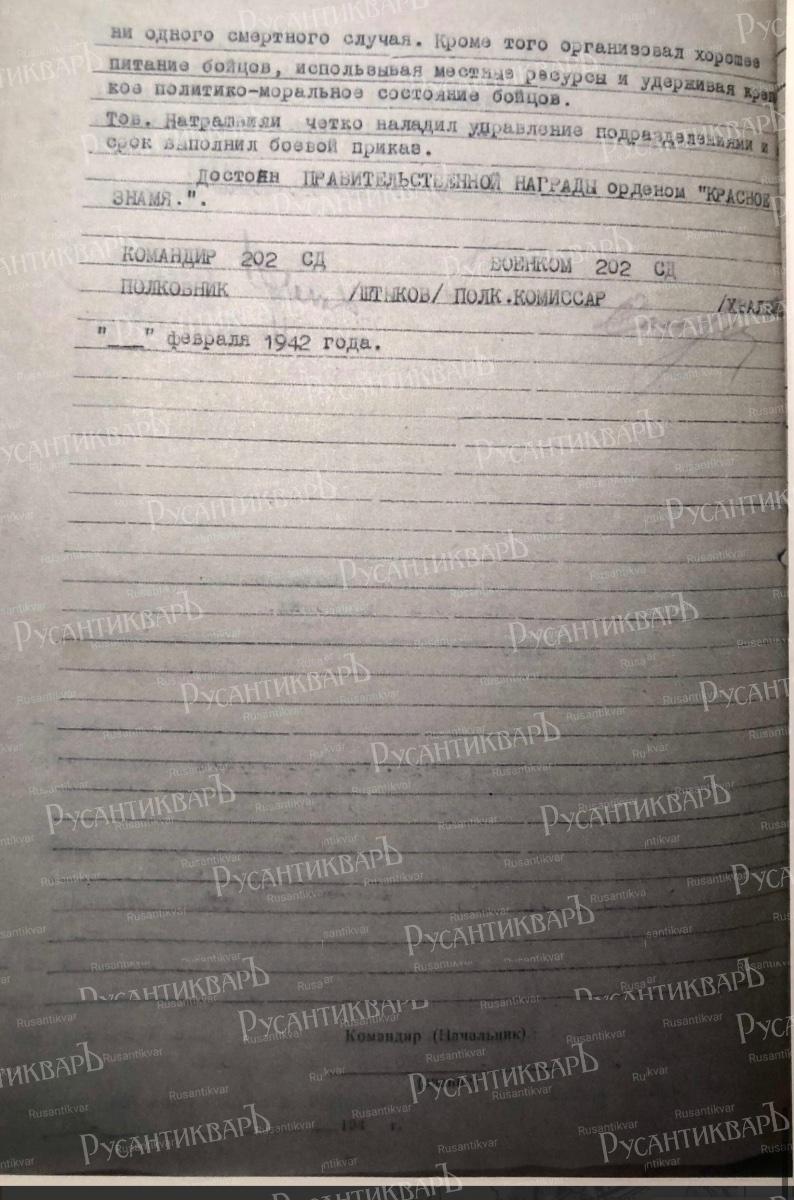 ни одного смертного случая. Кроме того организовал хорошее
питание бойцов, использывая местные ресурсы и удерживая креп
кое политико-моральное состояние бойцов.
Тов. четко наладил управление подразделениями и
срок выполнил боевой приказ.
Достоин ПРАВИТЕЛЬСТВЕННОЙ НАГРАДЫ орденом "КРАСНОЕ
ЗНАМЯ.".
КОМАНДИР 202 СД ВОЕНКОМ 202 СД
ПОЛКОВНИК /ШТЫКОВ/ ПОЛК.КОМИССАР
"___" февраля 1942 года.
Командир (Начальник)
194 г.
РусАнтикварЪ
Rusantikvar